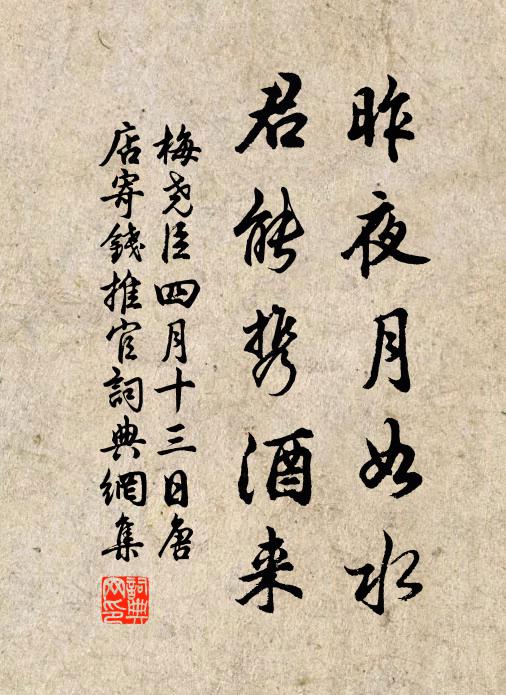 昨夜月如水
君能携酒来
梅尧臣四月十三日唐
店寄錢推官詞典網集
詞典网印